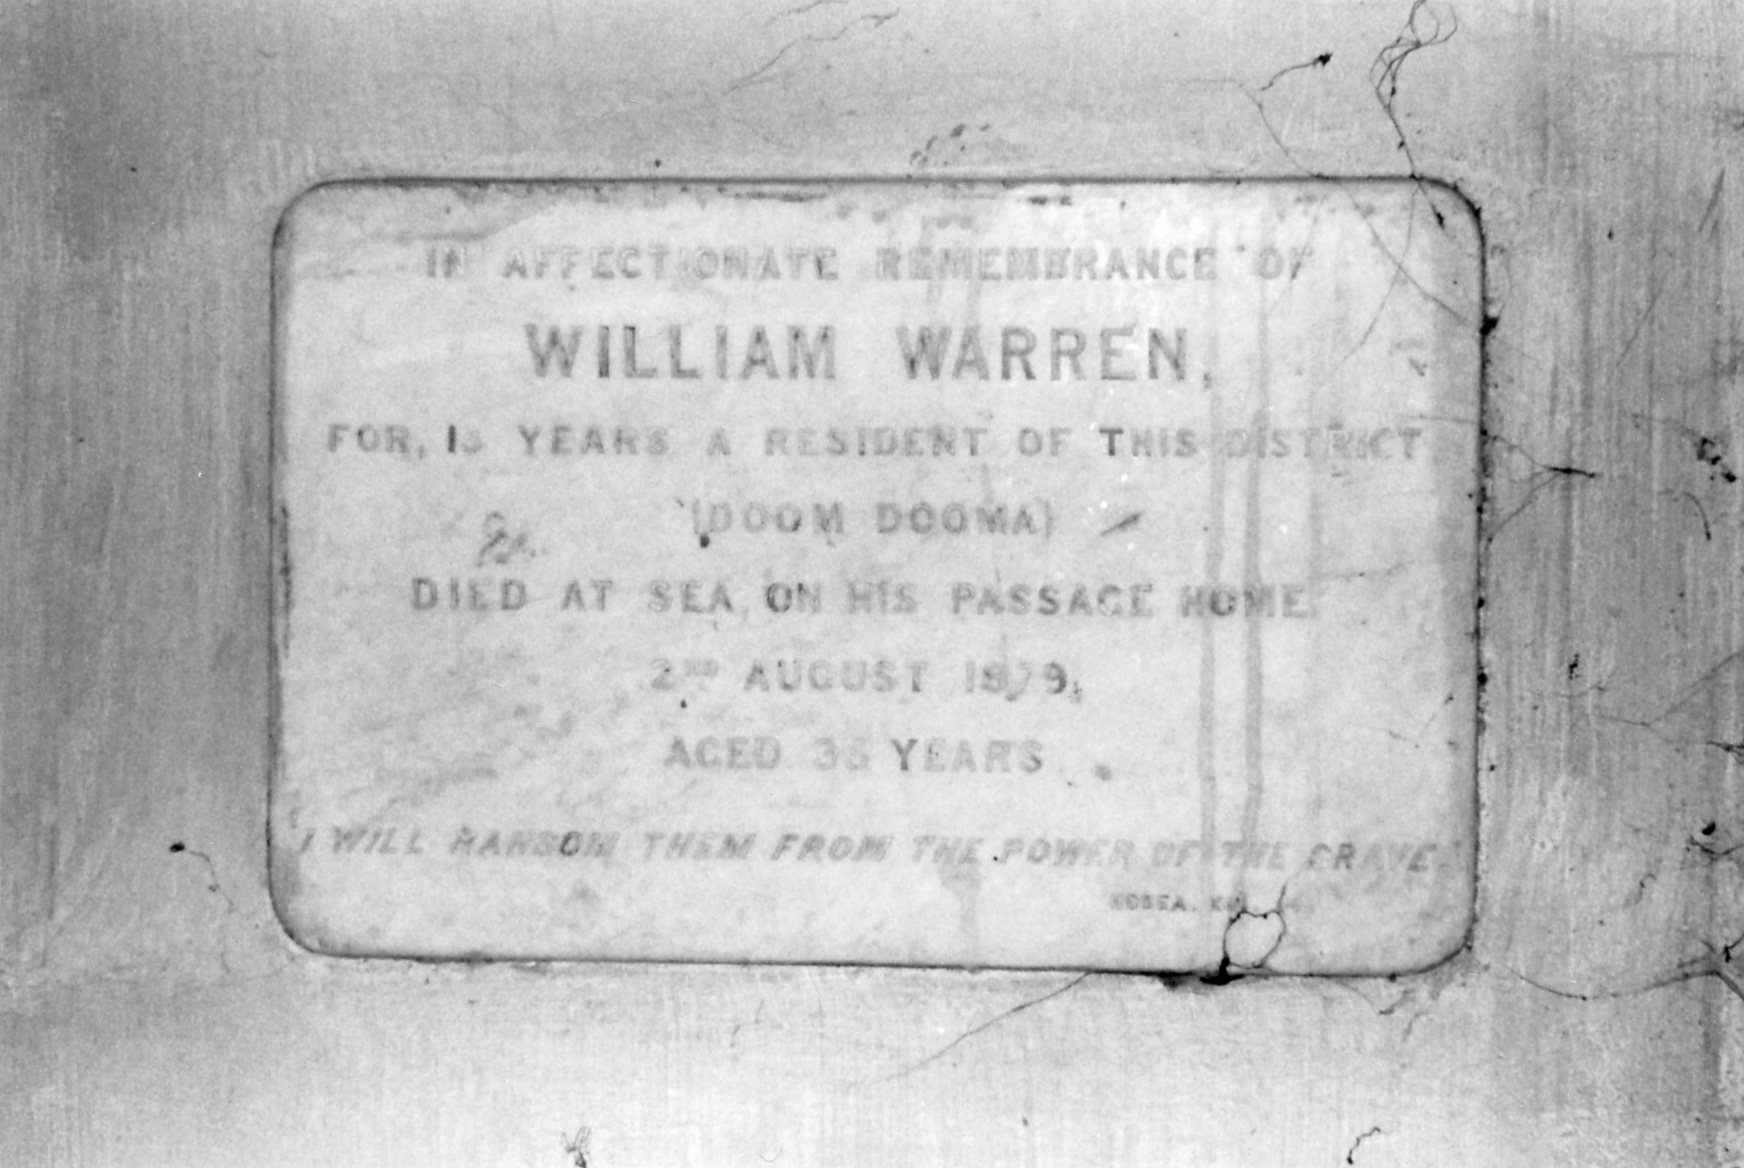 IN AFFECTIONATE REMEMBRANCE OF
WILLIAM WARREN,
FOR, 13 YEARS A RESIDENT OF THIS DISTRICT
(DOOM DOOMA)
DIED AT SEA, ON HIS PASSAGE HOME
2ND AUGUST 1879,
AGED YEARS
I WILL RANSOM THEM FROM THE POWER OF THE GRAVE
HOSEA.